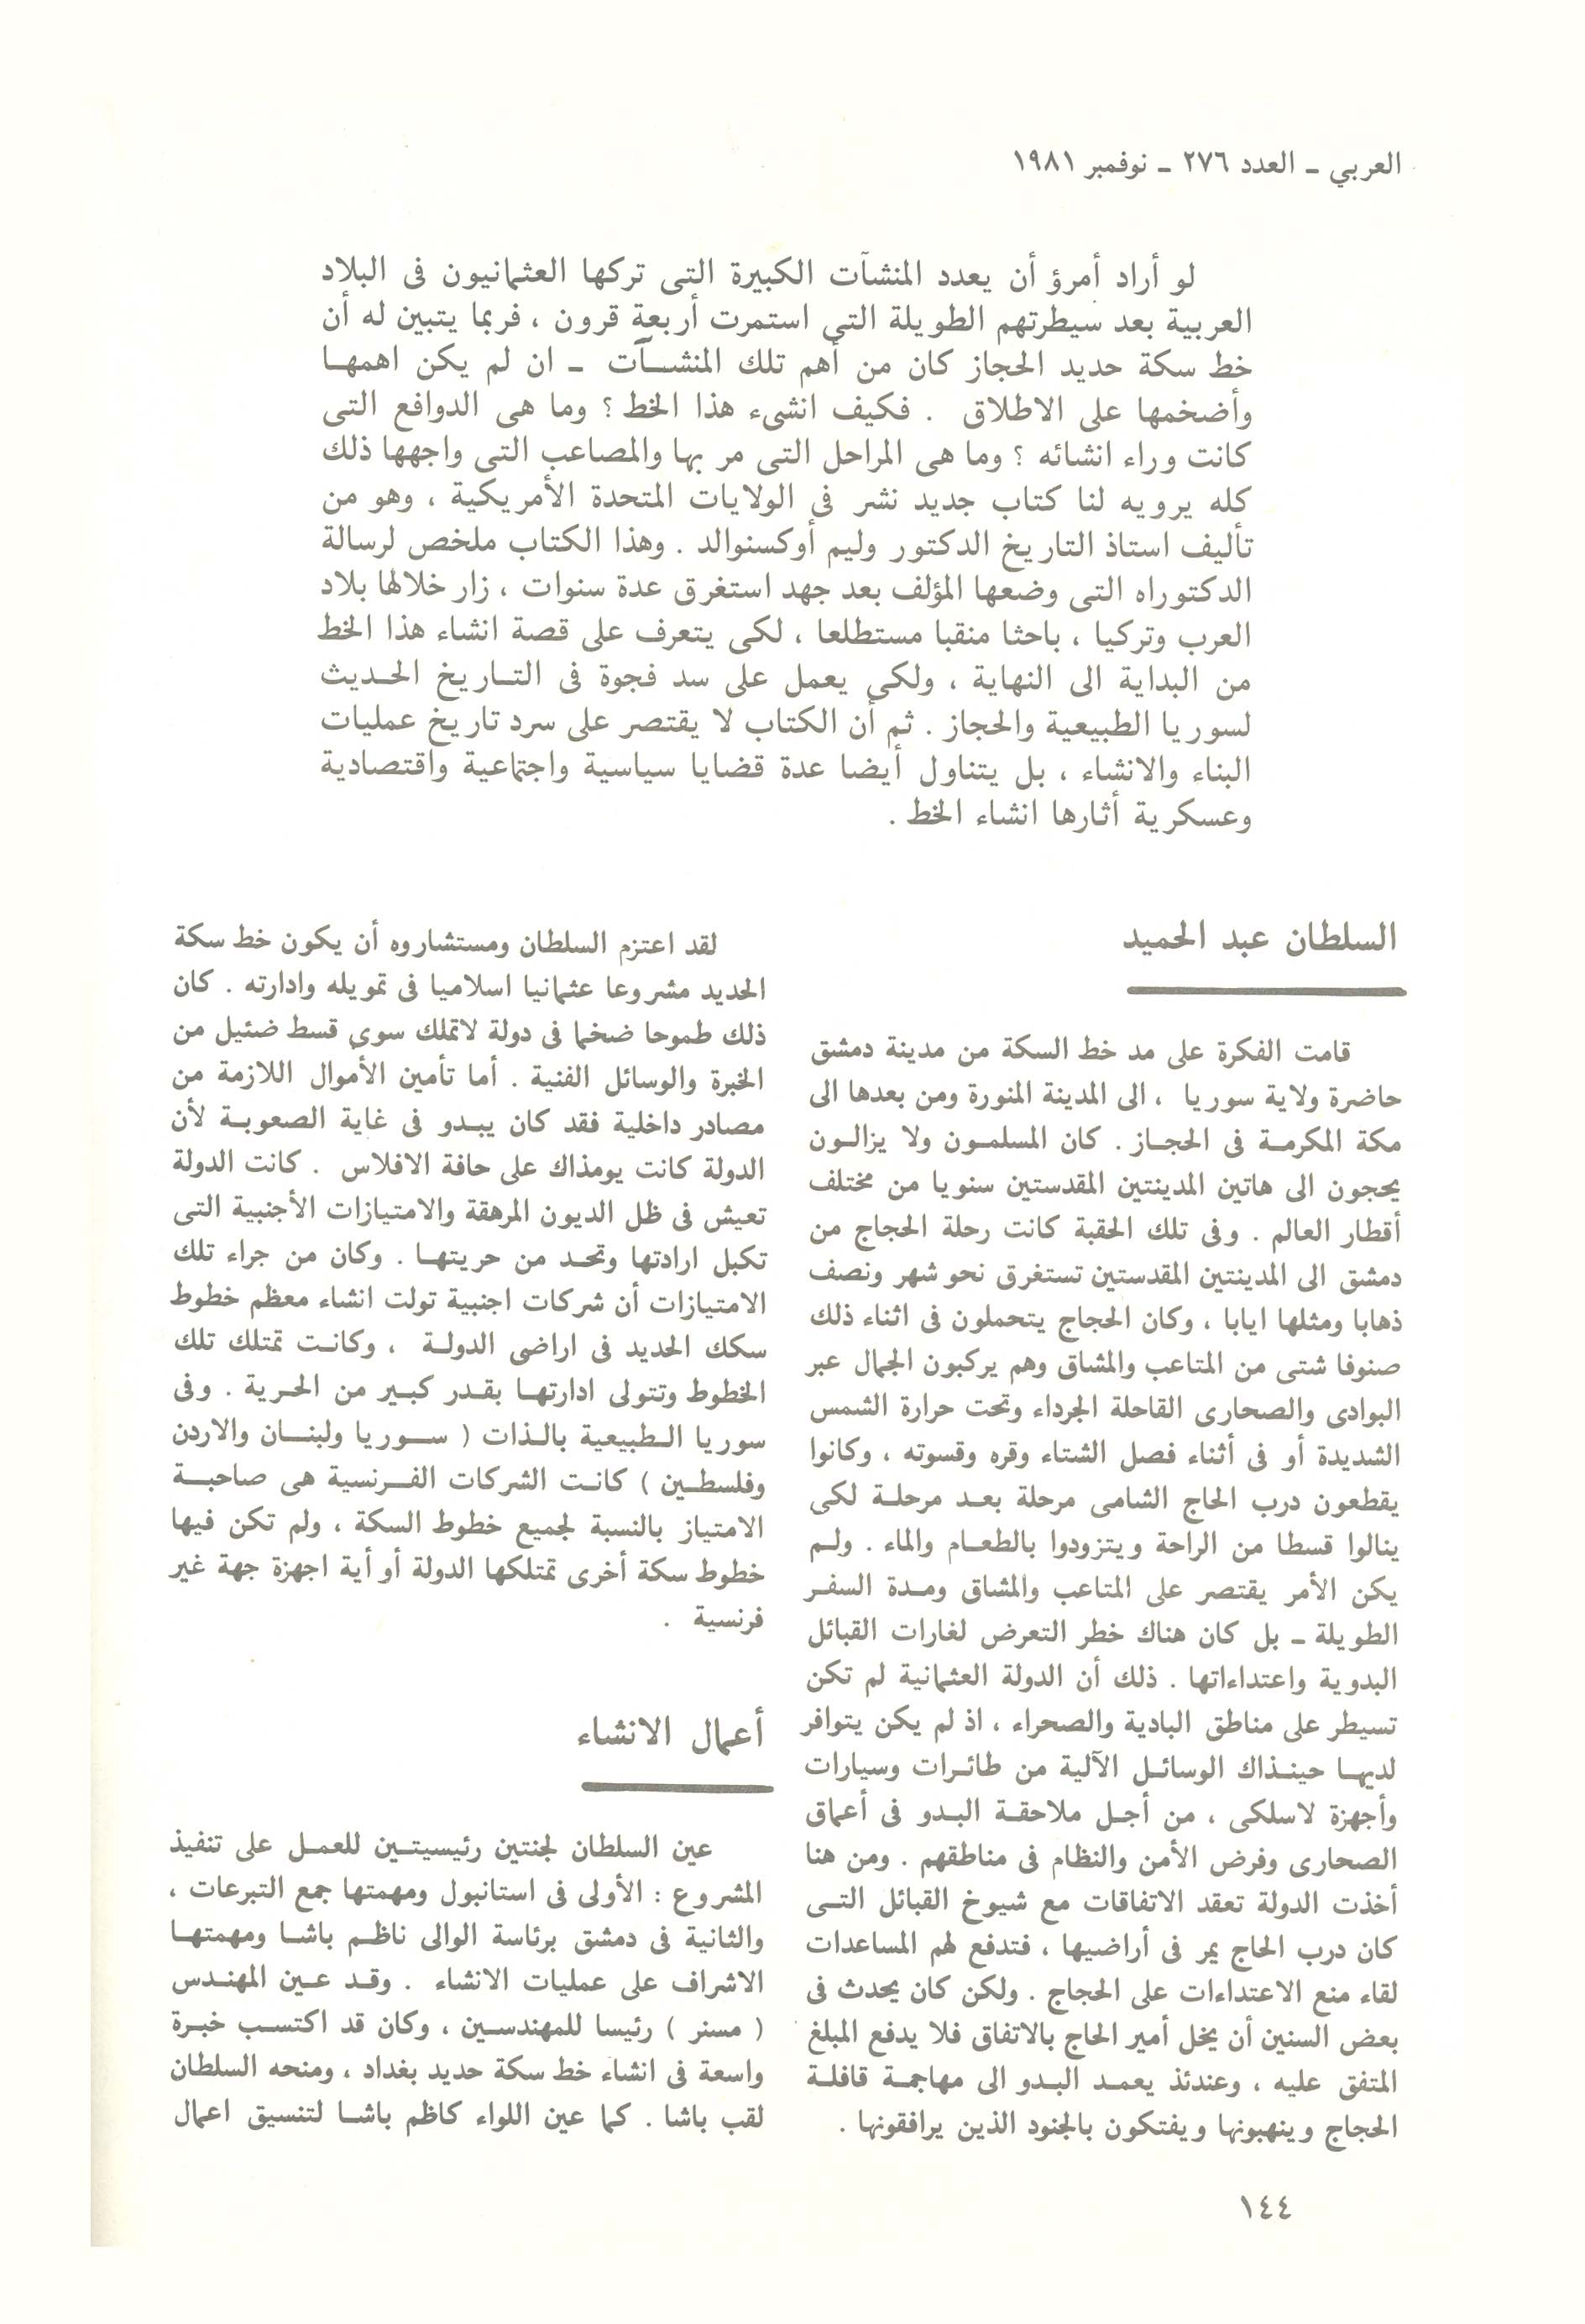 العربي - العدد ٢٧٦ - نوفمبر ١٩٨١
لو أراد أمرؤ أن يعدد المنشآت الكبيرة التى تركها العثمانيون فى البلاد
العربية بعد سيطرتهم الطويلة التى استمرت أربعة قرون ، فربما يتبين له أن
خط سكة حديد الحجاز كان من أهم تلك المنشـآت - ان لم يكن اهمهـا
وأضخمها على الاطلاق . فكيف انشىء هذا الخط ؟ وما هى الدوافع التى
كانت وراء انشائه ؟ وما هى المراحل التى مر بها والمصاعب التى واجهها ذلك
كله يرويه لنا كتاب جديد نشر فى الولايات المتحدة الأمريكية ، وهو من
تأليف استاذ التاريخ الدكتور وليم أوكسنوالد . وهذا الكتاب ملخص لرسالة
الدكتوراه التى وضعها المؤلف بعد جهد استغرق عدة سنوات ، زار خلالها بلاد
العرب وتركيا ، باحثا منقبا مستطلعا ، لكى يتعرف على قصة انشاء هذا الخط
من البداية الى النهاية ، ولكى يعمل على سد فجوة فى التـاريخ الحـديث
لسوريا الطبيعية والحجاز . ثم أن الكتاب لا يقتصر على سرد تاريخ عمليات
البناء والانشاء ، بل يتناول أيضا عدة قضايا سياسية واجتماعية واقتصادية
وعسكرية أثارها انشاء الخط .
السلطان عبد الحميد
قامت الفكرة على مد خط السكة من مدينة دمشق
حاضرة ولاية سوريا ، الى المدينة المنورة ومن بعدها الى
مكة المكرمـة فى الحجـاز . كان المسلمـون ولا يزالـون
يحجون الى هاتين المدينتين المقدستين سنويا من مختلف
أقطار العالم . وفى تلك الحقبة كانت رحلة الحجاج من
دمشق الى المدينتين المقدستين تستغرق نحو شهر ونصف
ذهابا ومثلها ايابا ، وكان الحجاج يتحملون فى اثناء ذلك
صنوفا شتى من المتاعب والمشاق وهم يركبون الجمال عبر
البوادى والصحارى القاحلة الجرداء وتحت حرارة الشمس
الشديدة أو فى أثناء فصل الشتاء وقره وقسوته ، وكانوا
يقطعون درب الحاج الشامى مرحلة بعـد مرحلـة لكى
ينالوا قسطا من الراحة ويتزودوا بالطعـام والماء . ولـم
يكن الأمر يقتصر على المتاعب والمشاق ومـدة السفـر
الطويلة - بل كان هناك خطر التعرض لغارات القبائل
البدوية واعتداءاتها . ذلك أن الدولة العثمانية لم تكن
تسيطر على مناطق البادية والصحراء ، اذ لم يكن يتوافر
لديهـا حينـذاك الوسائـل الآلية من طائـرات وسيارات
وأجهزة لاسلكى ، من أجـل ملاحقـة البـدو فى أعماق
الصحارى وفرض الأمن والنظام فى مناطقهم . ومن هنا
أخذت الدولة تعقد الاتفاقات مع شيوخ القبائل التـى
كان درب الحاج يمر فى أراضيها ، فتدفع لهم المساعدات
لقاء منع الاعتداءات على الحجاج . ولكن كان يحدث فى
بعض السنين أن يخل أمير الحاج بالاتفاق فلا يدفع المبلغ
المتفق عليه ، وعندئذ يعمـد البـدو الى مهاجمـة قافلـة
الحجاج وينهبونها ويفتكون بالجنود الذين يرافقونها .
لقد اعتزم السلطان ومستشاروه أن يكون خط سكة
الحديد مشروعا عثمانيا اسلاميا فى تمويله وادارته . كان
ذلك طموحا ضخما فى دولة لاتملك سوى قسط ضئيل من
الخبرة والوسائل الفنية . أما تأمين الأموال اللازمة من
مصادر داخلية فقد كان يبـدو فى غاية الصعوبـة لأن
الدولة كانت يومذاك على حافة الافلاس . كانت الدولة
تعيش فى ظل الديون المرهقة والامتيازات الأجنبية التى
تكبل ارادتها وتحـد من حريتهـا . وكان من جراء تلك
الامتيازات أن شركات اجنبية تولت انشاء معظم خطوط
سكك الحديد فى اراضى الدولـة ، وكانـت تمتلك تلك
الخطوط وتتولى ادارتهـا بقـدر كبـير من الحـرية . وفى
سوريا الـطبيعية بالـذات ( سـوريا ولبنـان والاردن
وفلسطـين ) كانـت الشركات الفـرنسية هى صاحبـة
الامتياز بالنسبة لجميع خطوط السكة ، ولم تكن فيها
خطوط سكة أخرى تمتلكها الدولة أو أية اجهزة جهة غير
فرنسية .
أعمال الانشاء
عين السلطان لجنتين رئيسيتـين للعمـل على تنفيذ
المشروع : الأولى فى استانبول ومهمتها جمع التبرعات ،
والثانية فى دمشق برئاسة الوالى ناظـم باشـا ومهمتهـا
الاشراف على عمليات الانشاء . وقـد عـين المهنـدس
( مسنر ) رئيسا للمهندسـين ، وكان قد اكتسـب خبـرة
واسعة فى انشاء خط سكة حديد بغداد ، ومنحه السلطان
لقب باشا . كما عين اللواء كاظم باشـا لتنسيق اعمال
١٤٤